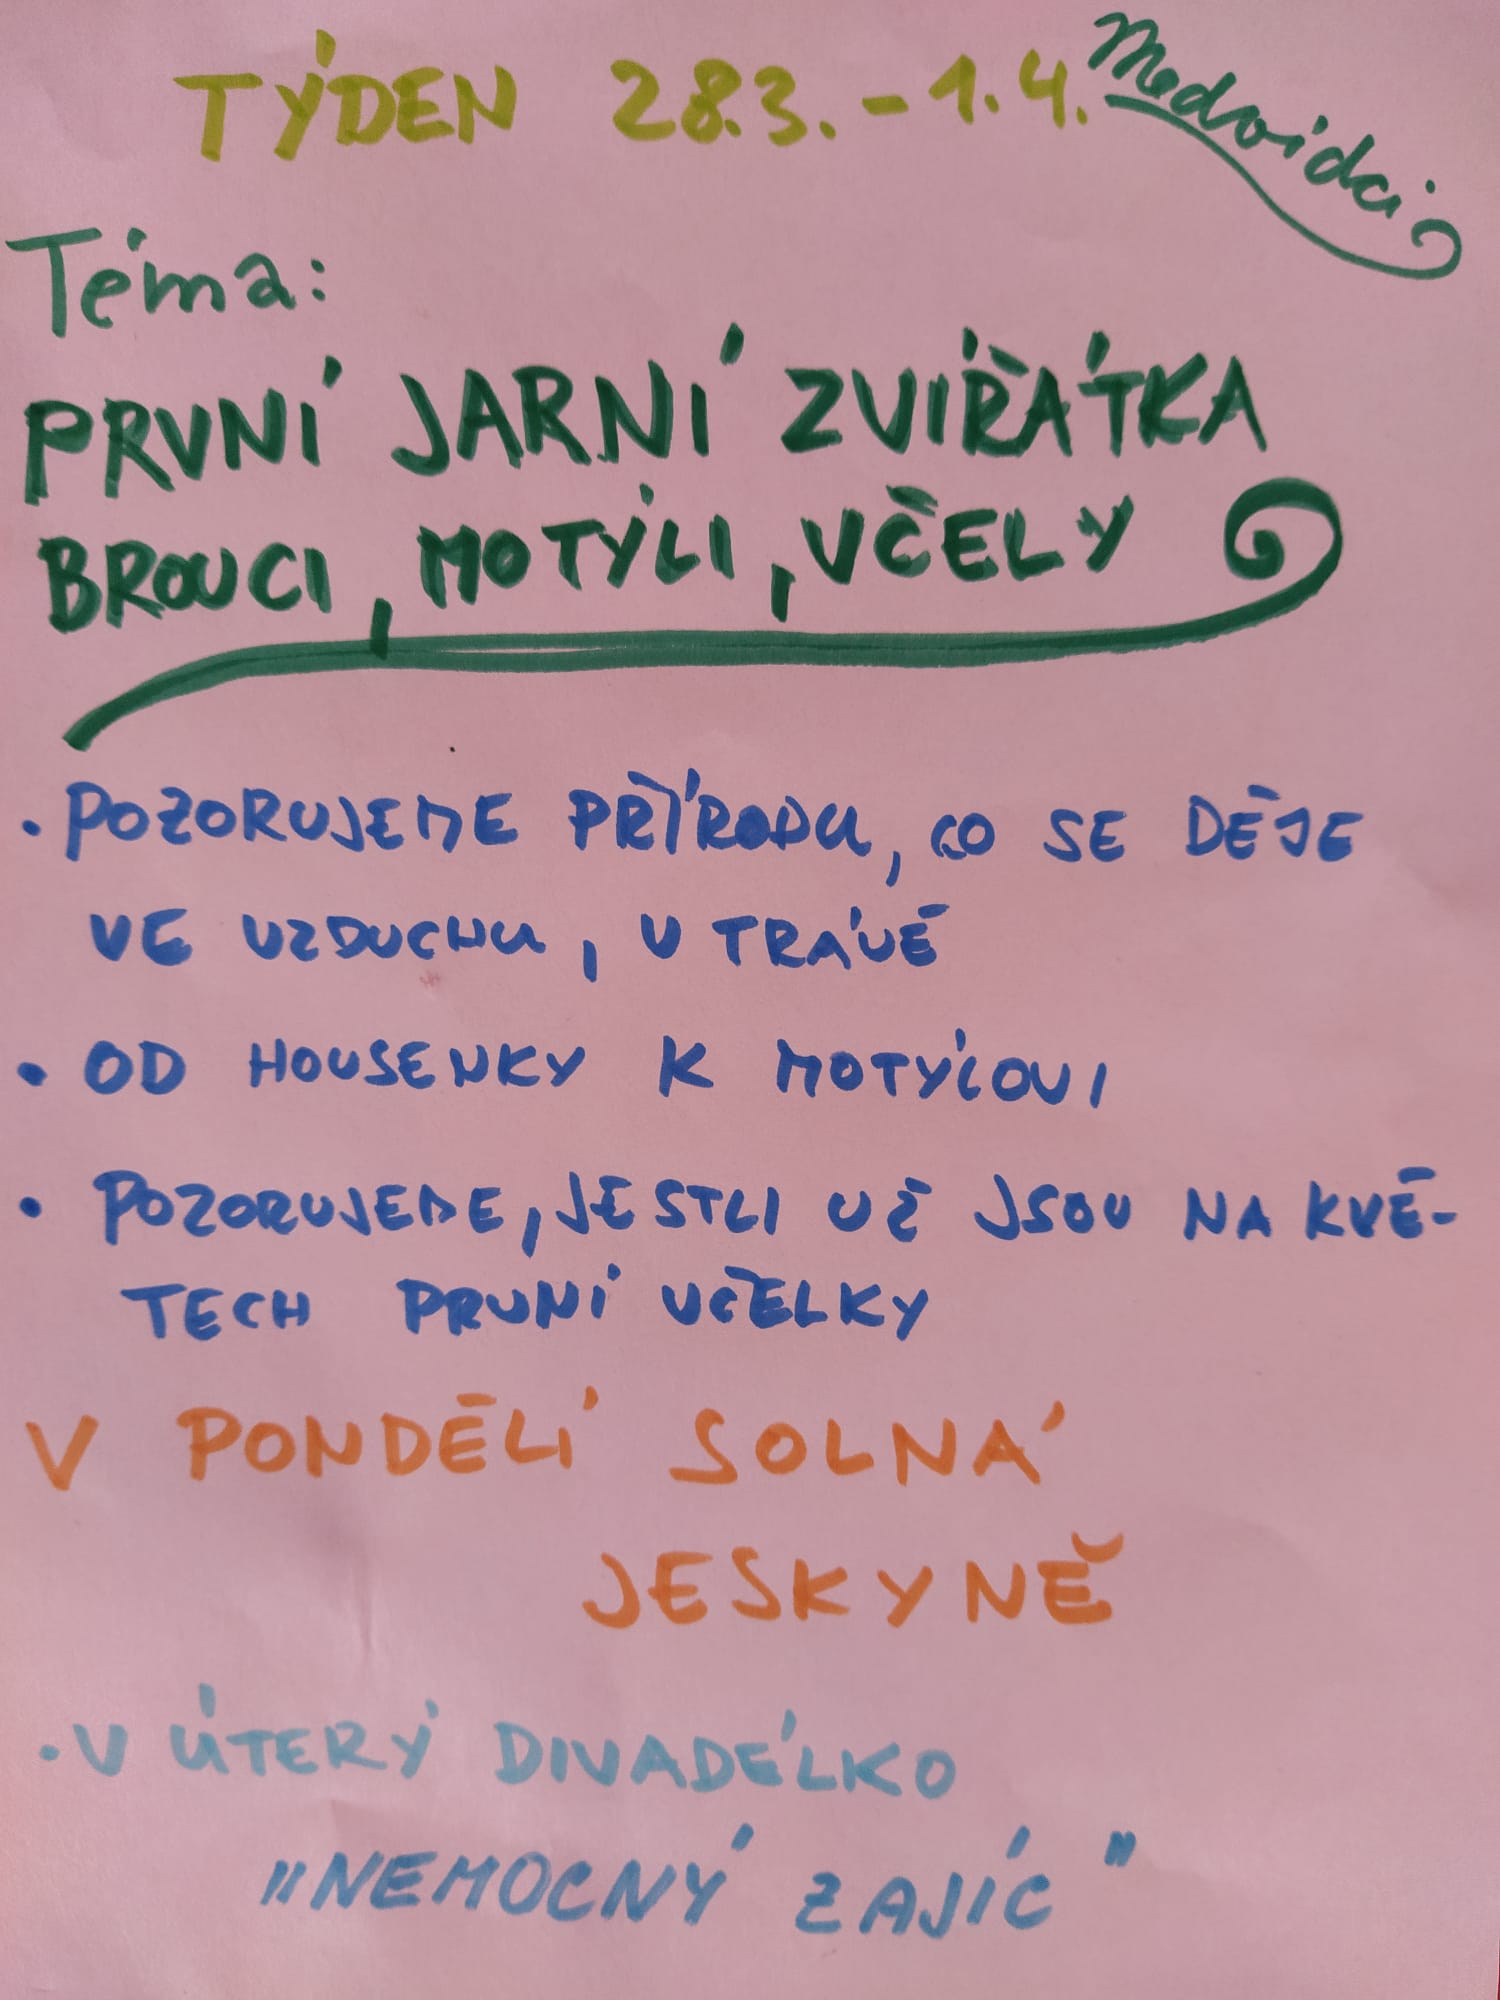 TÝDEN 28.3. - 1.4. Medvídci
Téma:
PRVNÍ JARNÍ ZVÍŘÁTKA
BROUCI, MOTÝLI, VČELY
• POZORUJEME PŘÍRODU, CO SE DĚJE
VE VZDUCHU, V TRÁVĚ
• OD HOUSENKY K MOTÝLOVI
• POZORUJEME, JESTLI UŽ JSOU NA KVĚ-
TECH PRVNÍ VČELKY
V PONDĚLÍ SOLNÁ
JESKYNĚ
• V ÚTERÝ DIVADÉLKO
"NEMOCNÝ ZAJÍC"